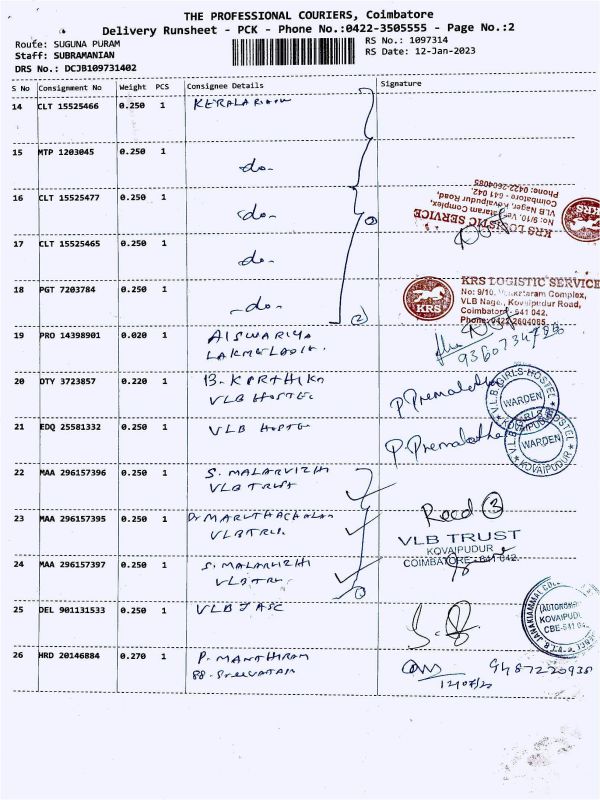 THE PROFESSIONAL COURIERS, Coimbatore
Delivery Runsheet - PCK - Phone No.:0422-3505555 - Page No.:2
Route: SUGUNA PURAM
RS No.: 1097314
Staff: SUBRAMANIAN
RS Date: 12-Jan-2023
DRS No.: DCJB109731402
S No Consignment No Weight PCS Consignee Details Signature
14 CLT 15525466 0.250 1
15 MTP 1203045 0.250 1 -do-
16 CLT 15525477 0.250 1 -do-
KRS LOGISTIC SERVICE
No: 9/10, Venkataram Complex,
VLB Nagar, Kovaipudur Road,
Coimbatore - 641 042.
Phone: 0422-2604085
KRS
17 CLT 15525465 0.250 1 -do-
18 PGT 7203784 0.250 1 -do-
KRS
KRS LOGISTIC SERVICE
No: 9/10, Venkataram Complex,
VLB Nagar, Kovaipudur Road,
Coimbatore - 641 042.
Phone: 0422-2604085
19 PRO 14398901 0.020 1 AISWARIYA
20 DTY 3723857 0.220 1 B. KARTHIKA
VLB HOSTEL
P. Premalatha
V.L.B. GIRLS HOSTEL
WARDEN
KOVAIPUDUR
21 EDQ 25581332 0.250 1 VLB HOSTEL
P. Premalatha
V.L.B. GIRLS HOSTEL
WARDEN
KOVAIPUDUR
22 MAA 296157396 0.250 1 S. MALARVIZHI
VLB TRUST
23 MAA 296157395 0.250 1 Dr MARUTHACHALAM
VLB TRU.
Recd 3
VLB TRUST
KOVAIPUDUR
COIMBATORE - 641 042.
24 MAA 296157397 0.250 1 S. MALARVIZHI
VLB TRU.
25 DEL 901131533 0.250 1 VLB JASC
(AUTONOMOUS)
KOVAIPUDUR
CBE-641 042
26 HRD 20146884 0.270 1 P. MANTHIRAM
9487220938